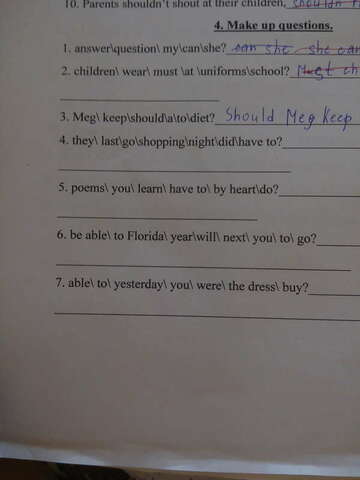 10. Parents shouldn't shout at their children,
4. Make up questions.
1. answer\question\ my\can\she? can she she can
2. children\ wear\ must \at \uniforms\school? Must ch
3. Meg\ keep\should\a\to\diet? Should Meg keep
4. they\ last\go\shopping\night\did\have to?
5. poems\ you\ learn\ have to\ by heart\do?
6. be able\ to Florida\ year\will\ next\ you\ to\ go?
7. able\ to\ yesterday\ you\ were\ the dress\ buy?